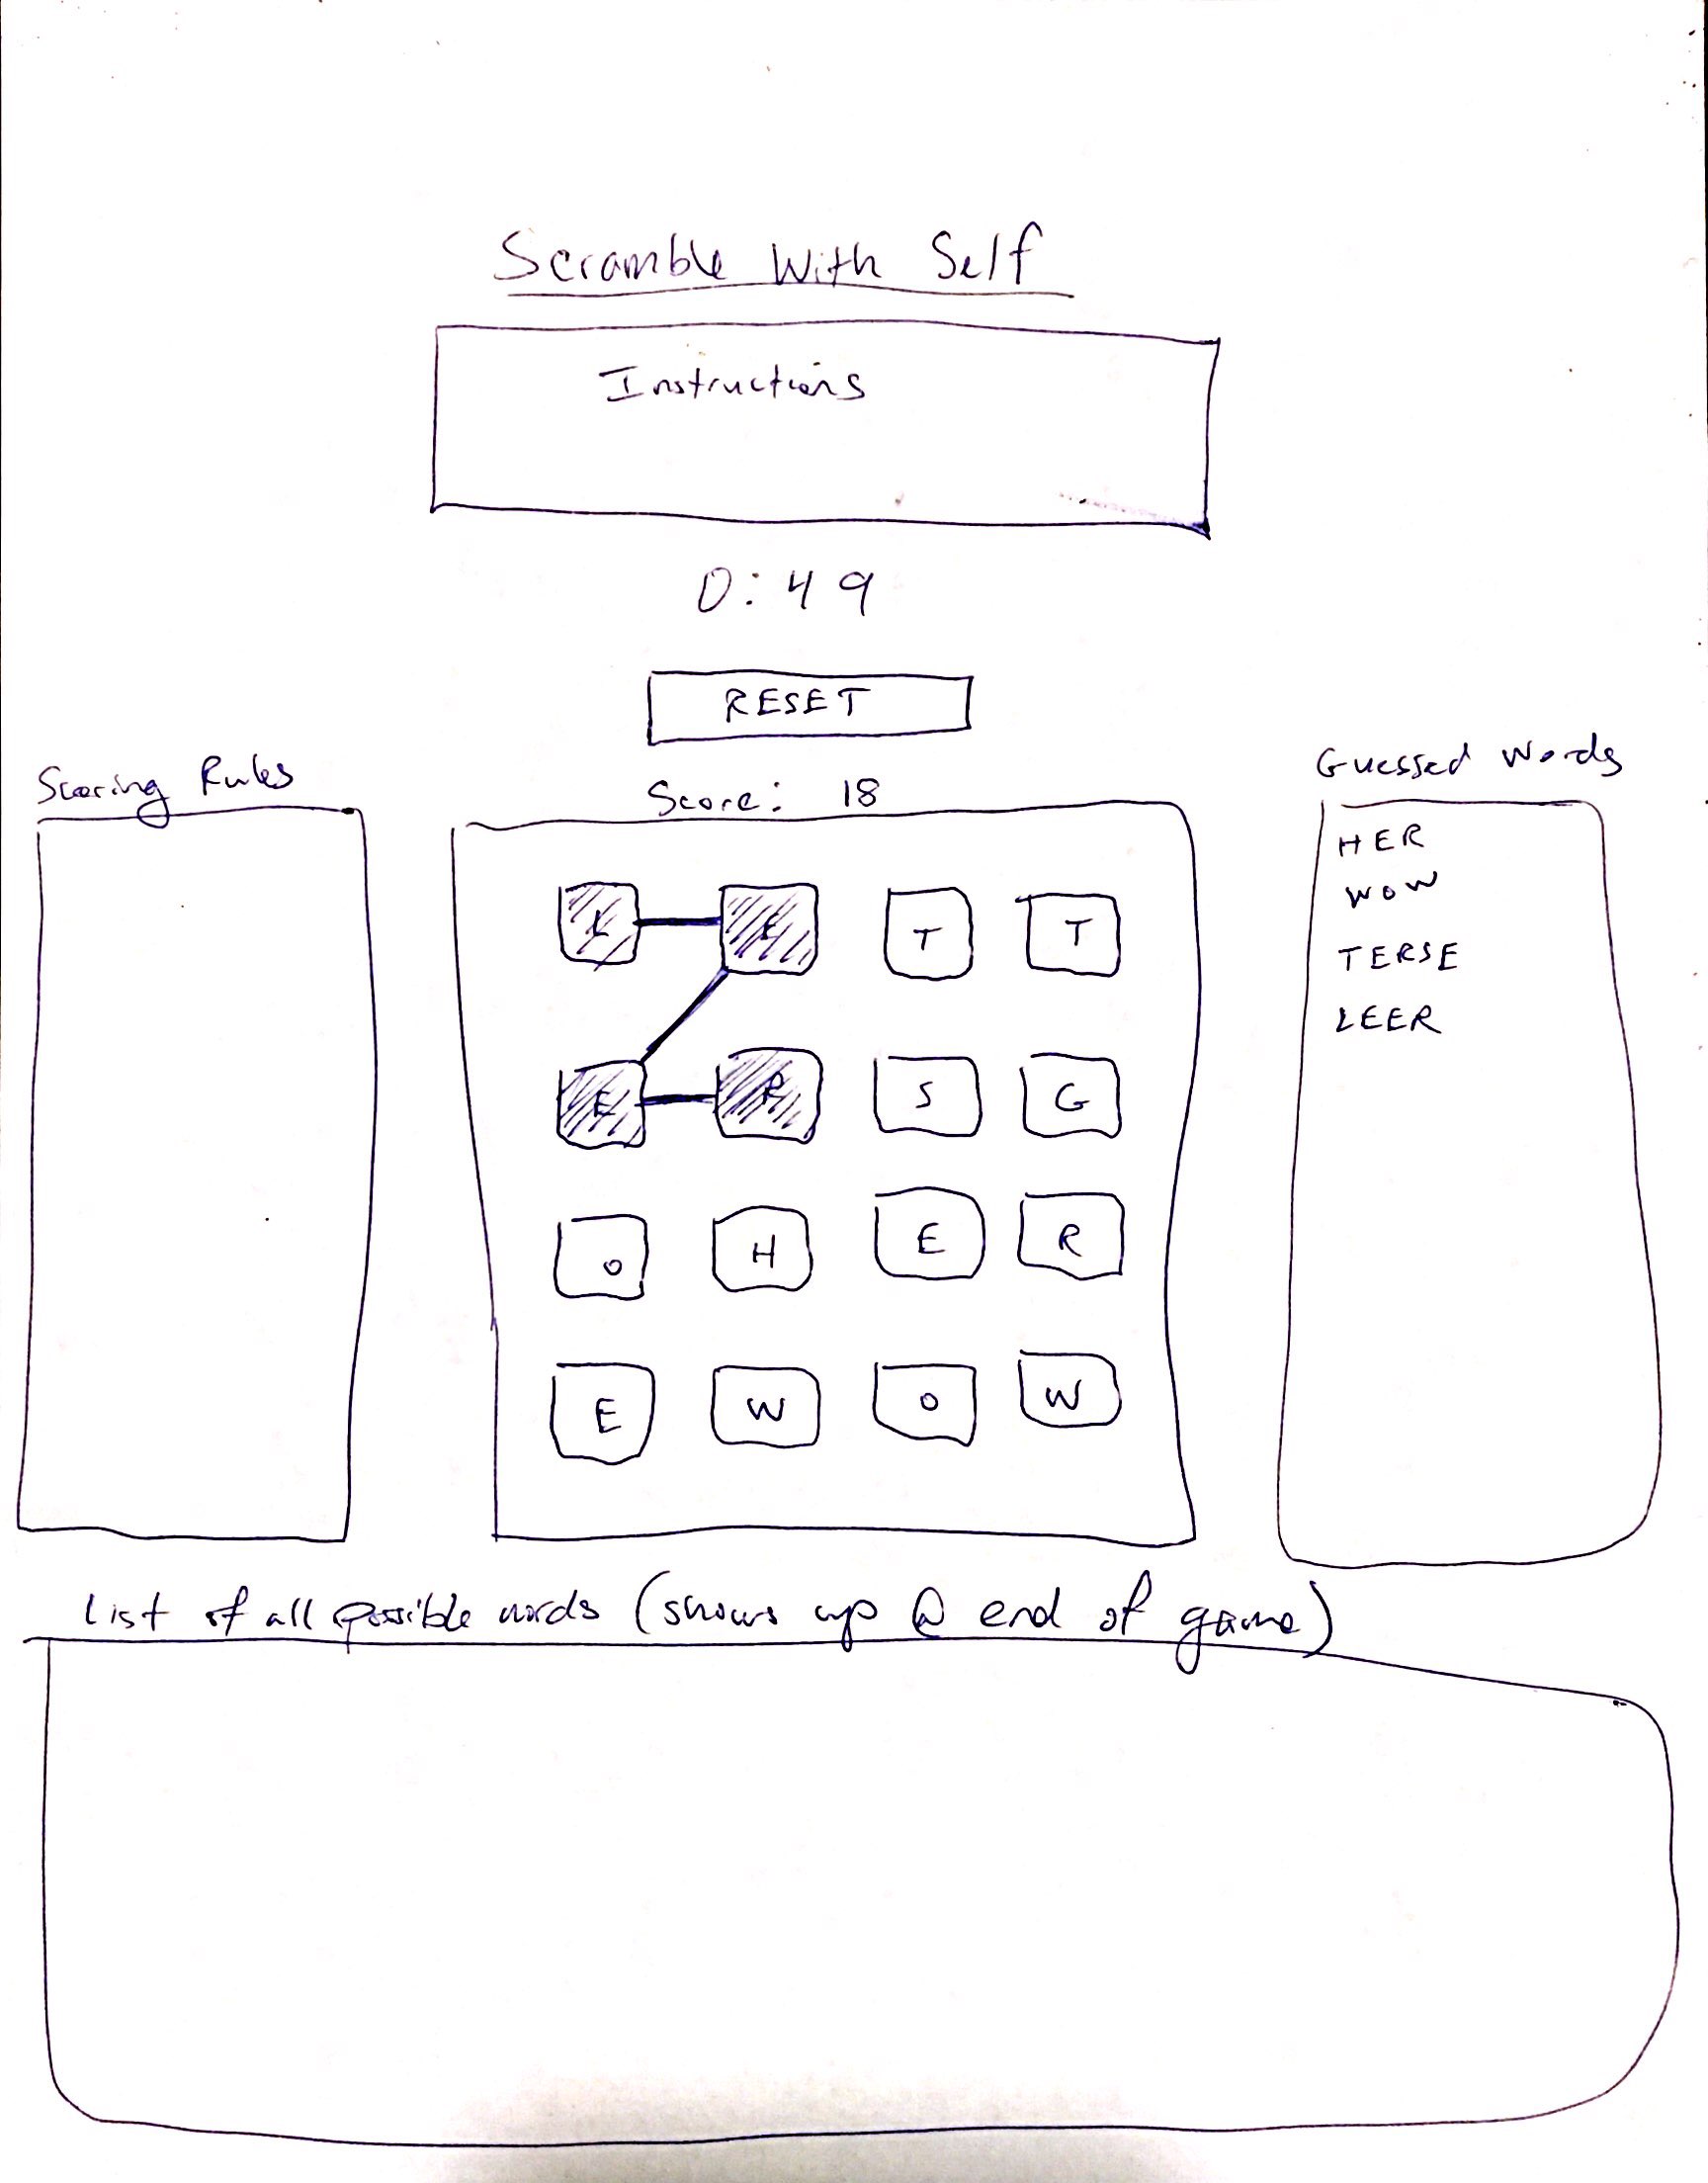 Scramble With Self
Instructions
0:49
RESET
Scoring Rules
Score: 18
Guessed Words
L E T T
E R S G
O H E R
E W O W
HER
WOW
TERSE
LEER
List of all possible words (shows up @ end of game)